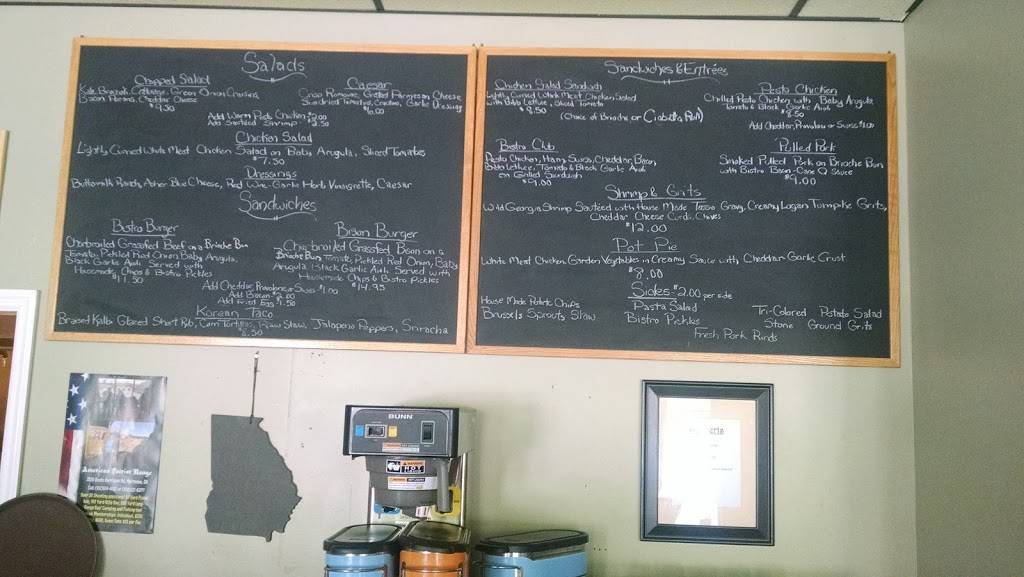 Salads
Chopped Salad
Kale, Broccoli, Cabbage, Green Onion, Craisins,
Bacon, Cheddar Cheese
$9.50
Caesar
Crisp Romaine, Grated Parmesan Cheese
Sundried Tomatoes, Croutons, Garlic Dressing
$6.00
Add Warm Chicken $2.00
Add Shrimp $2.50
Chicken Salad
Lightly Curried White Meat Chicken Salad on Baby Arugula, Sliced Tomatoes
$7.50
Dressings
Buttermilk Ranch, Asher Blue Cheese, Red Wine-Garlic Herb Vinaigrette, Caesar
Sandwiches
Bistro Burger
Charbroiled Grassfed Beef on a Brioche Bun
Tomato, Pickled Red Onion, Baby Arugula,
Black Garlic Aioli, Served with
Housemade Chips & Bistro Pickles
$11.50
Bison Burger
Charbroiled Grassfed Bison on a
Brioche Bun, Tomato, Pickled Red Onion, Baby
Arugula, Black Garlic Aioli, Served with
Housemade Chips & Bistro Pickles
$14.95
Add Cheddar, Provolone or Swiss $1.00
Add Bacon $2.00
Add Fried Egg 1.50
Korean Taco
Braised Kalbi Glazed Short Rib, Corn Tortillas, Slaw, Jalapeño Peppers, Sriracha
8.50
Sandwiches & Entrées
Chicken Salad Sandwich
Lightly Curried White Meat Chicken Salad
with Bibb Lettuce, Sliced Tomato
$8.50
(Choice of Brioche or Ciabatta Roll)
Pesto Chicken
Chilled Pesto Chicken with Baby Arugula
Tomato & Black Garlic Aioli
$8.50
Add Cheddar, Provolone or Swiss $1.00
Bistro Club
Pesto Chicken, Ham, Swiss, Cheddar, Bacon,
Bibb Lettuce, Tomato & Black Garlic Aioli
on Grilled Sourdough
$9.00
Pulled Pork
Smoked Pulled Pork on Brioche Bun
with Bistro Bacon-Cane Q Sauce
$9.00
Shrimp & Grits
Wild Georgia Shrimp Sautéed with House Made Tasso Gravy, Creamy Logan Turnpike Grits,
Cheddar Cheese Curds, Chives
$12.00
Pot Pie
White Meat Chicken, Garden Vegetables in Creamy Sauce with Cheddar Garlic Crust
$8.00
Sides $2.00 per side
House Made Potato Chips
Brussels Sprouts Slaw
Pasta Salad
Bistro Pickles
Tri-Colored Potato Salad
Stone Ground Grits
Fresh Pork Rinds
BUNN
HOT
American Patriot Range